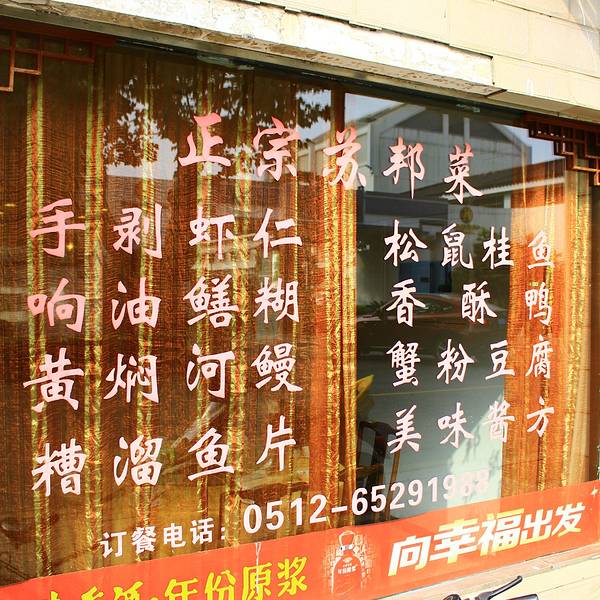 正宗苏邦菜
手剥虾仁
松鼠桂鱼
响油鳝糊
香酥鸭
黄焖河鳗
蟹粉豆腐
糟溜鱼片
美味酱方
订餐电话：0512-65291988
年份原浆
向幸福出发